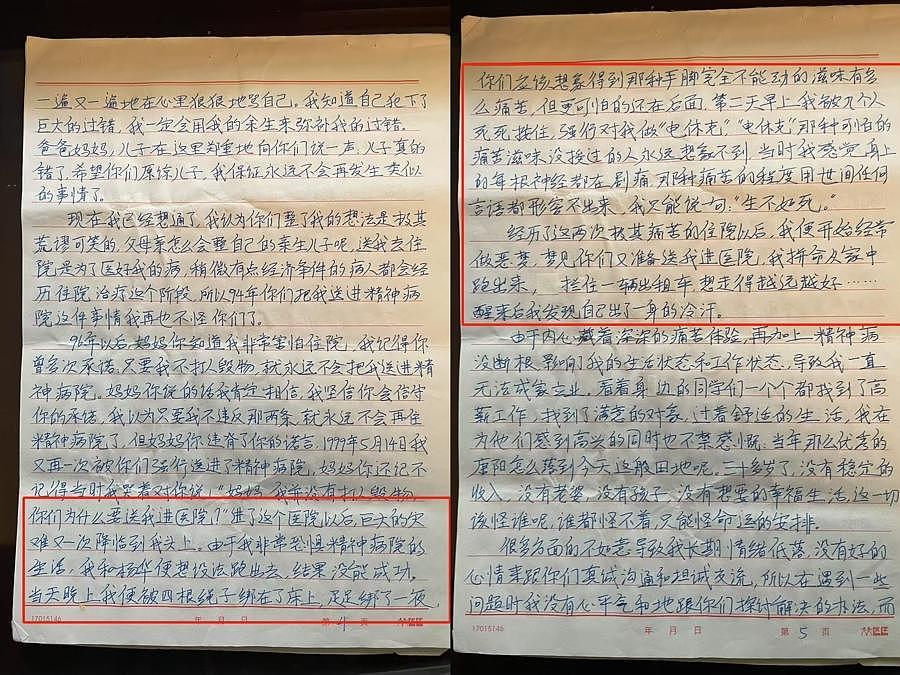 一遍又一遍地在心里狠狠地骂自己。我知道自己犯下了
巨大的过错,我一定会用我的余生来弥补我的过错。
爸爸妈妈,儿子在这里郑重地向你们说一声,儿子真的
错了,希望你们原谅儿子,我保证永远不会再发生类似
的事情了。
现在我已经想通了,我认为你们整了我的想法是极其
荒谬可笑的,父母亲怎么会整自己的亲生儿子呢,送我去住
院是为了医好我的病,稍微有点经济条件的病人都会经
历住院治疗这个阶段,所以94年你们把我送进精神病
院这件事情我再也不怪你们了。
96年以后,妈妈你知道我非常害怕住院,我记得你
曾多次承诺,只要我不打人毁物,就永远不会把我送进精
神病院。妈妈你说的话我肯定相信,我坚信你会信守
你的承诺,我以为只要我不违反那两条,就永远不会再住
精神病院了,但妈妈你违背了你的诺言,1999年5月14日我
又再一次被你们强行送进了精神病院,妈妈你还记不
记得当时我哭着对你说,“妈妈,我并没有打人毁物,
你们为什么要送我进医院?”进了这个医院以后,巨大的灾
难又一次降临到我头上。由于我非常恐惧精神病院的
生活,我和杨华便想设法跑出去,结果没能成功。
当天晚上我便被四根绳子绑在了床上,足足绑了一夜,
17015146 年 月 日 第 4 页
你们应该想象得到那种手脚完全不能动的滋味有多
么痛苦,但更可怕的还在后面,第二天早上我被九个人
死死按住,强行对我做“电休克”,“电休克”那种可怕的
痛苦滋味没接过的人永远想象不到,当时我感觉身上
的每根神经都在剧痛,那种痛苦的程度用世间任何
言语都形容不出来,我只能说句:“生不如死。”
经历了这两次极其痛苦的住院以后,我便开始经常
做恶梦,梦见你们又准备送我进医院,我拼命从家中
跑出来,拦住一辆出租车,想走得越远越好……
醒来后我发现自己出了一身的冷汗。
由于内心藏着深深的痛苦体验,再加上精神病
没断根,影响了我的生活状态和工作状态,导致我一直
无法成家立业。看着身边的同学们一个个都找到了高
薪工作,找到了满意的对象,过着舒适的生活,我在
为他们感到高兴的同时也不禁感慨:当年那么优秀的
康阳怎么落到今天这般田地呢。三十多岁了,没有稳定的
收入,没有老婆,没有孩子,没有想要的幸福生活,这一切
该怪谁呢,谁都怪不着,只能怪命运的安排。
很多方面的不如意导致我长期情绪低落,没有好的
心情来跟你们真诚沟通和坦诚交流,所以在遇到一些
问题时我没有心平气和地跟你们探讨解决的办法,而
17015146 年 月 日 第 5 页